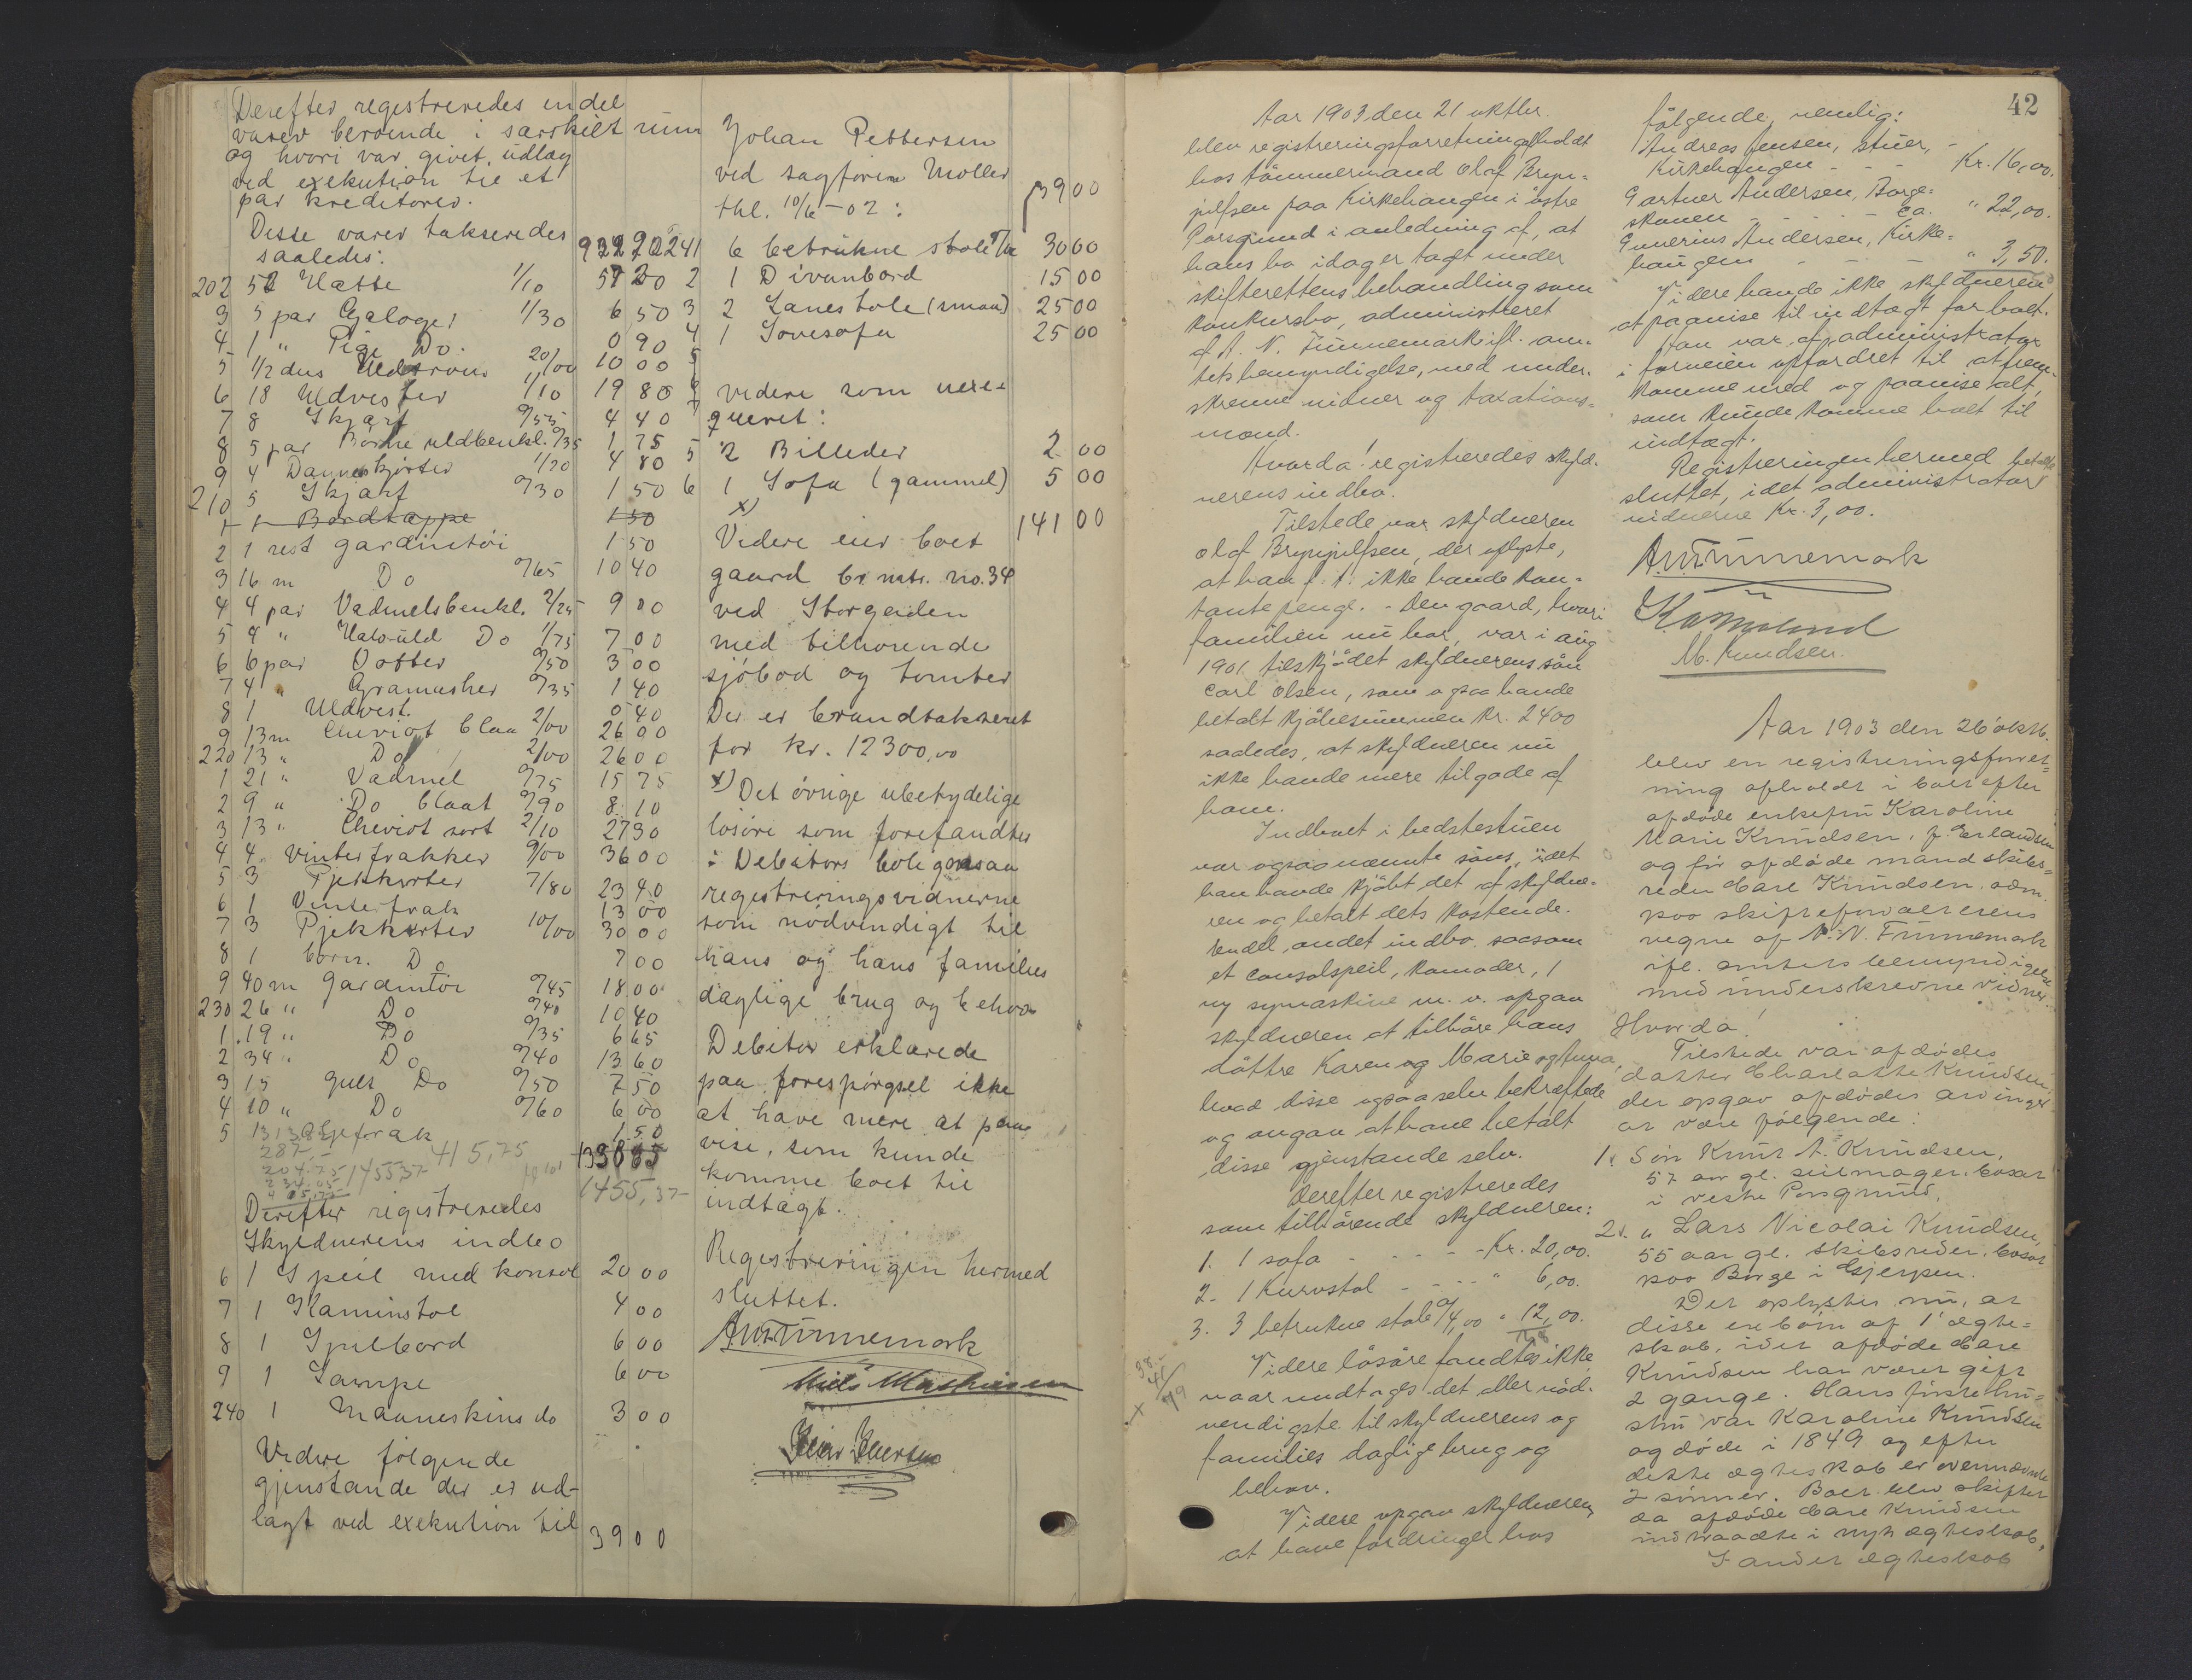 Derefter registreredes endel
varer beroende i særskilt rum
og hvori var givet udlæg
ved exekution til et
par kreditorer.
Disse varer takseredes
saaledes:
202 52 Hatte 1/10 57 20
3 5 par Galoger 1/30 6 50
4 1 " Pige Do. 0 90
5 1/2 dus 20/00 10 00
6 18 Uldvester 1/10 19 80
7 8 Skjærf 0/55 4 40
8 5 par Börne uldbenkl. 0/35 1 75
9 4 Dameskjorter 1/20 4 80
210 5 Skjærf 0/30 1 50
1 1 Bordtæppe 1 50
2 1 rest gardintöi 1 50
3 16 m Do 0/65 10 40
4 4 par Vadmelsbenkl. 2/25 9 00
5 4 " Halvuld Do 1/75 7 00
6 6 par Votter 0/50 3 00
7 4 " Gramascher 0/35 1 40
8 1 Uldvest. 0 40
9 13 m Cheviot blaa 2/00 26 00
220 13 " Do 2/00 26 00
1 21 " Vadmel 0/75 15 75
2 9 " Do blaat 0/90 8 10
3 13 " Cheviot sort 2/10 27 30
4 4 Vinterfrakker 9/00 36 00
5 3 Pjekkerter 7/80 23 40
6 1 Vinterfrak 13 00
7 3 Pjekkerter 10/00 30 00
8 1 barn. Do 7 00
9 40 m Gardintöi 0/45 18 00
230 26 " Do 0/40 10 40
1 19 " Do 0/35 6 65
2 34 " Do 0/40 13 60
3 15 gult Do 0/50 7 50
4 10 " Do 0/60 6 00
5 1 50
415,75
1455,37
1455,37
Derefter registreredes
Skyldnerens indbo
6 1 Speil med konsol 20 00
7 1 Kaminstol 4 00
8 1 Spilbord 6 00
9 1 Lampe 6 00
240 1 Maaneskins do 3 00
Videre følgende
gjenstande der er ud-
lagt ved exekution til
39 00
Johan Pettersen
ved sagförer Möller
thl. 10/6-02: 39 00
241 6 betrukne stole 5/00 30 00
2 1 Divanbord 15 00
3 2 Lænestole (smaa) 25 00
4 1 Sovesofa 25 00
videre som uere-
queret:
5 2 Billeder 2 00
6 1 Sofa (gammel) 5 00
141 00
x)
Videre eier boet
gaard br. mtr. no. 34
ved Storgaden
med tilhörende
sjöbod og tomter
Der er brandtakseret
for kr. 12300,00
x) Det övrige ubetydelige
lösöre som forefandtes
i Debitors bolig ansaa
registreringsvidnerne
som nödvendigt til
hans og hans families
daglige brug og behov
Debitor erklærede
paa forespörgsel ikke
at have mere at paa-
vise, som kunde
komme boet til
indtægt.
Registreringen hermed
sluttet.
A. N. Finnemark
Niels Mathiesen
42
Aar 1903 den 21 oktbr.
blev registreringsforretning afholdt
hos tömmermand Olaf Bryn-
julfsen paa Kirkehaugen i östre
Porsgrund i anledning af, at
hans bo idag er tagt under
skifterettens behandling som
konkursbo, administreret
af A. N. Finnemark ifl. am-
tets bemyndigelse, med under-
skrevne vidner og taxations-
mænd.
Hvorda! registreredes skyld-
nerens indbo.
Tilstede var skyldneren
Olaf Brynjulfsen, der oplyste,
at han f. t. ikke havde kon-
tante penge. - Den gaard, hvori
familien nu bor, var i aug
1901 tilskjödet skyldnerens sön
Carl Olsen, som ogsaa havde
betalt kjöbesummen kr. 2400
saaledes, at skyldneren nu
ikke havde mere tilgode af
ham.
Indboet i bedstestuen
var ogsaa nævnte söns, idet
han havde kjöbt det af skyldne-
ren og betalt dets kostende.
Endel andet indbo saasom
et consolspeil, komoder, 1
ny symaskine m. v. opgav
skyldneren at tilhöre hans
döttre Karen og Marie og Anna,
hvad disse ogsaa selv bekræftede
og angav at have betalt
disse gjenstande selv.
Derefter registreredes
som tilhörende skyldneren:
1. 1 sofa - - - - Kr. 20,00.
2. 1 Kurvstol - - - " 6,00.
3. 3 betrukne stole a/4,00 " 12,00.
Videre lösöre fandtes ikke
naar undtages det aller nöd-
vendigste til skyldnerens og
families daglige brug og
behov.
Videre opgav skyldneren
at have fordringer hos
følgende, nemlig:
Andreas Jensen, stuer, -
Kirkehaugen - - Kr. 16,00.
Gartner Andersen, Borge-
skoven - - - ca. " 22,00.
Gunerius Andersen, Kirke-
haugen - - - " 3,50.
Videre havde ikke skyldneren
at paavise til indtægt for boet.
Han var af administrator
i forveien opfordret til at frem-
komme med og paavise alt,
som kunde komme boet til
indtægt.
Registreringen hermed
sluttet, idet administrator betalte
vidnerne Kr. 3,00.
A. N. Finnemark
M. Knudsen.
Aar 1903 den 26 oktb.
blev en registreringsforret-
ning afholdt i boet efter
afdöde enkefru Karoline
Marie Knudsen, f. Erlandsen
og för afdöde mand skibs-
reder Carl Knudsen, adm.
paa skifteforvalterens
vegne af A. N. Finnemark
ifl. amtets bemyndigelse
med underskrevne vidner.
Hvorda!
Tilstede var afdödes
datter Charlotte Knudsen
der opgav afdödes arvinger
at være følgende:
1. Sön Knut A. Knudsen,
57 aar gl. seilmager, bosat
i vestre Porsgrund.
2. " Lars Nicolai Knudsen,
55 aar gl. skibsreder, bosat
paa Borge i Gjerpen.
Det oplystes nu, at
disse er börn af 1' ægte-
skab, idet afdöde Carl
Knudsen har været gift
2 gange. Hans förste hu-
stru var Karoline Knudsen
og döde i 1849 og efter
dette ægteskab er ovennævnte
2 sönner. Boet blev skiftet
da afdöde Carl Knudsen
indtraadte i nyt ægteskab.
I andet ægteskab